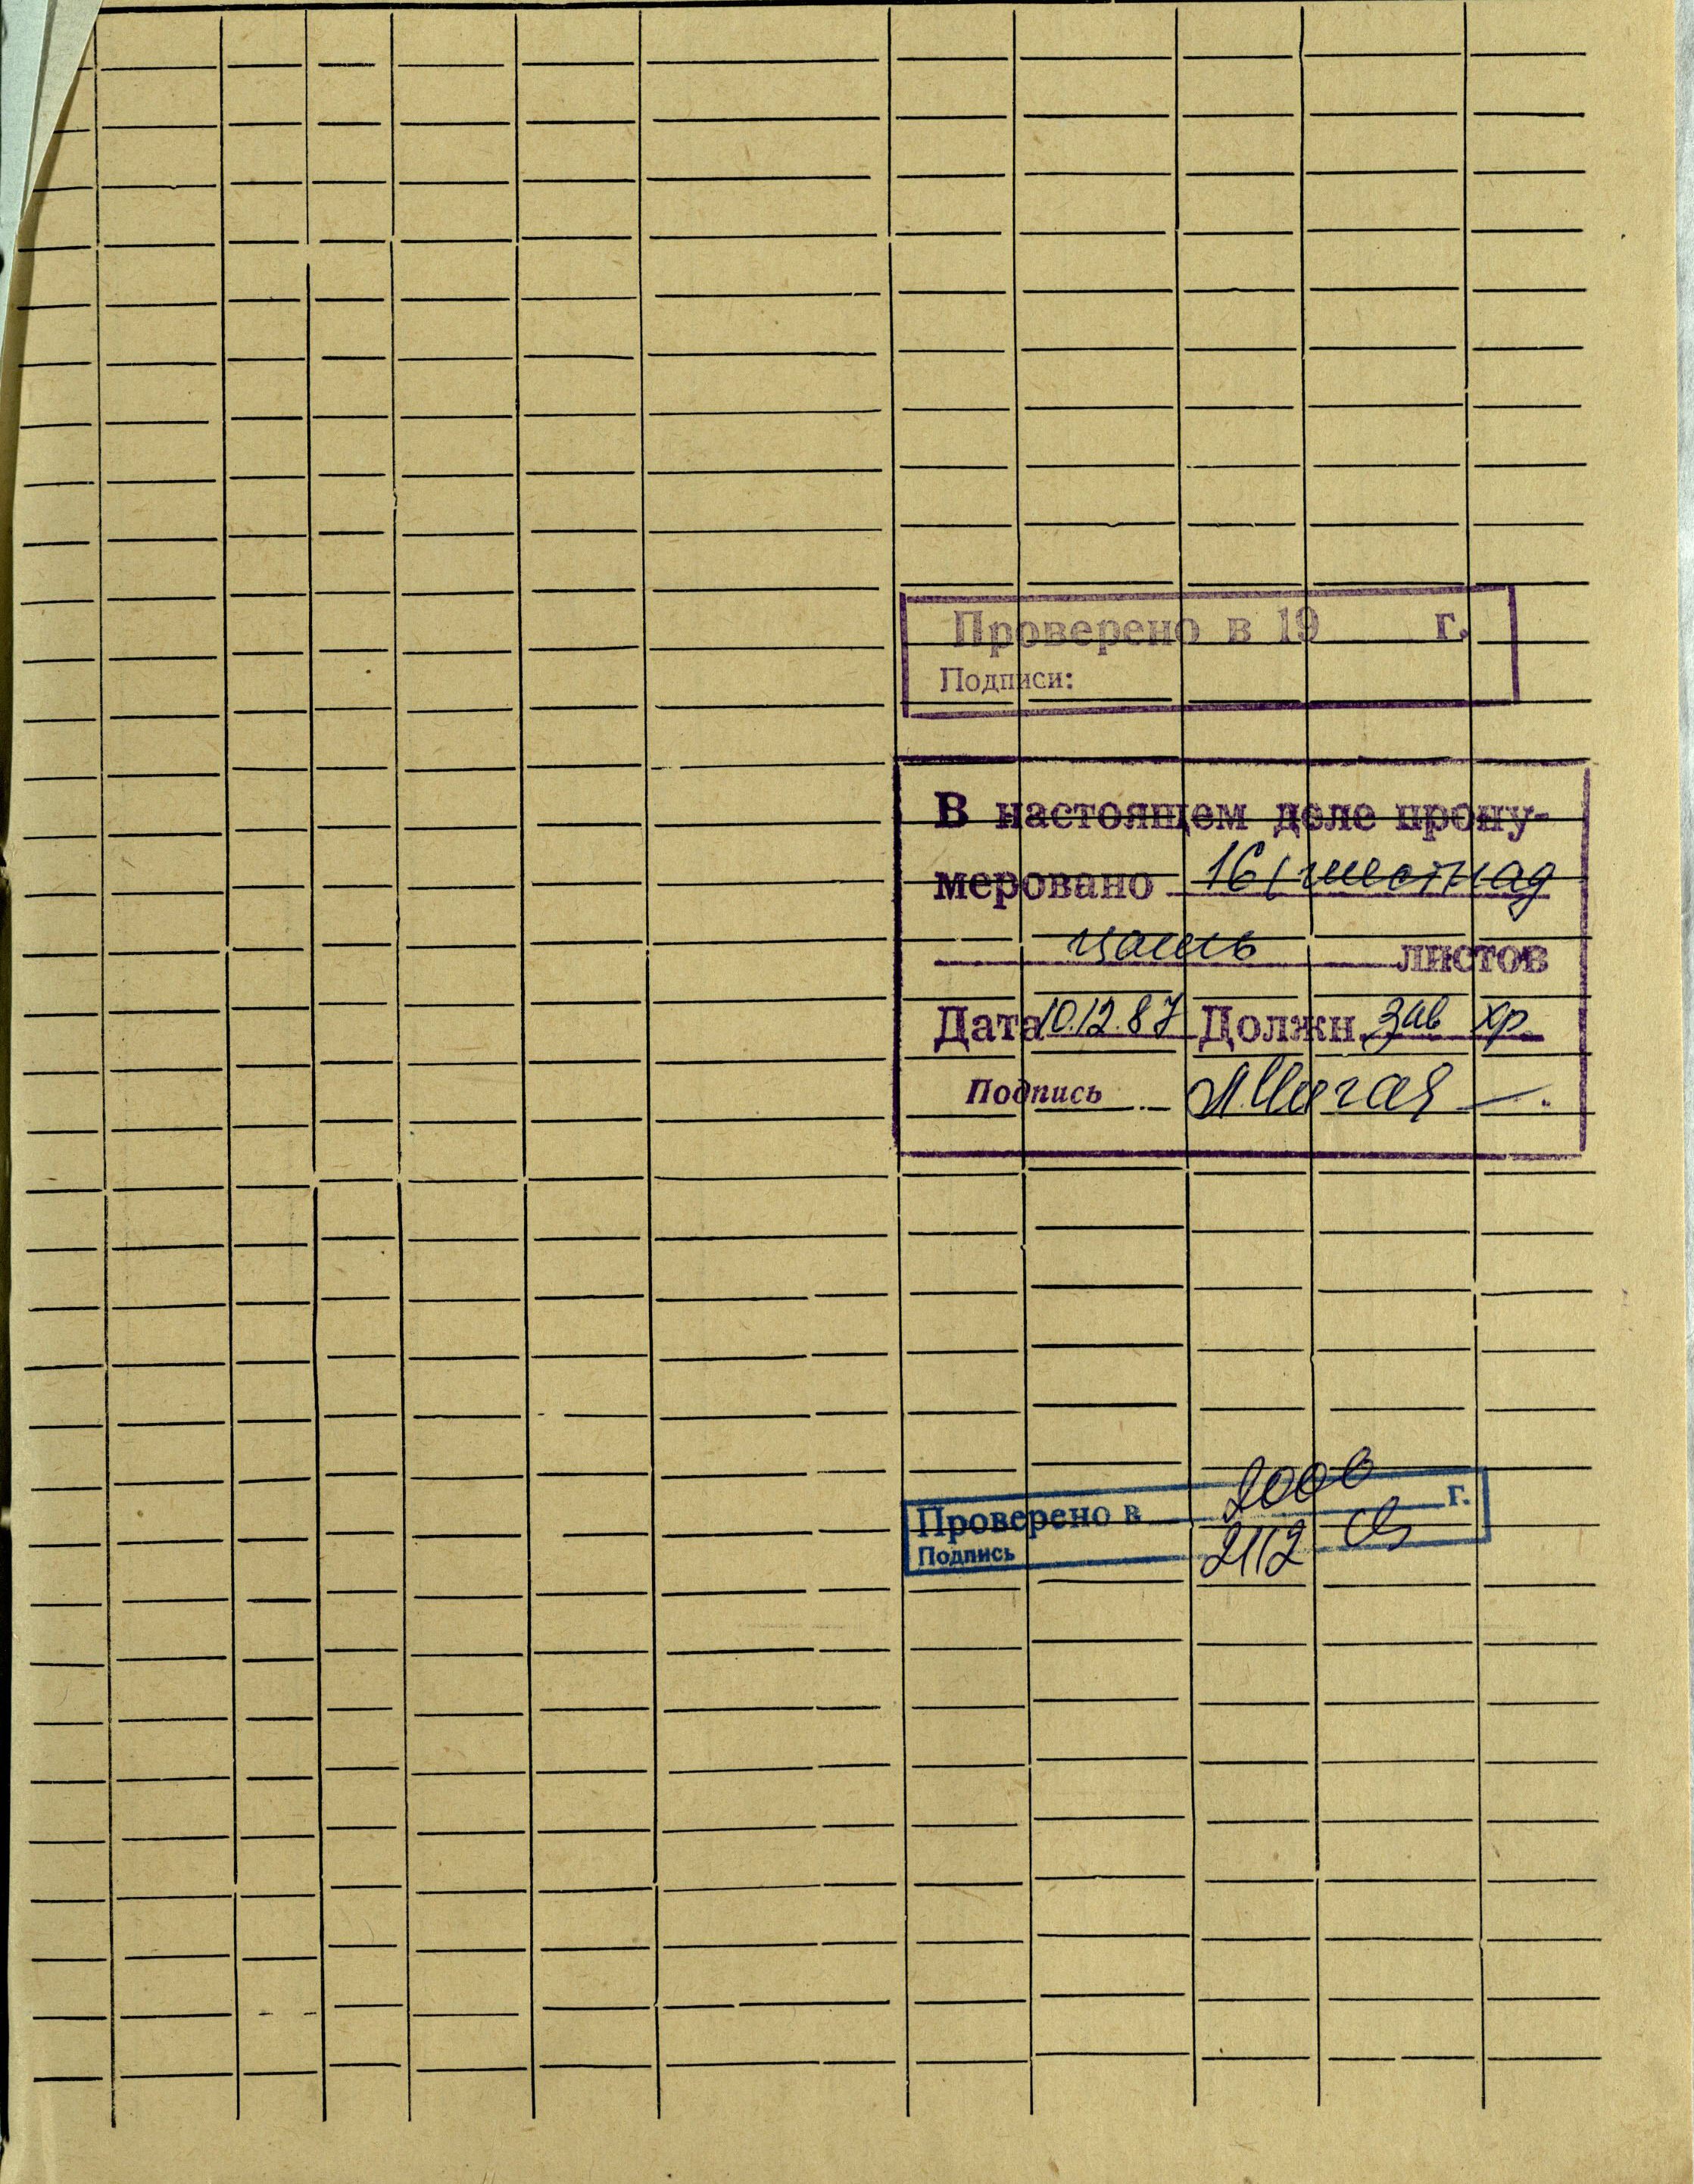 Проверено в 19 г.
Подписи:
В настоящем деле прону-
меровано 16 (шестнад
цать листов
Дата 10.12.87 Должн. зав хр.
Подпись
Проверено в 2000 г.
Подпись 2112